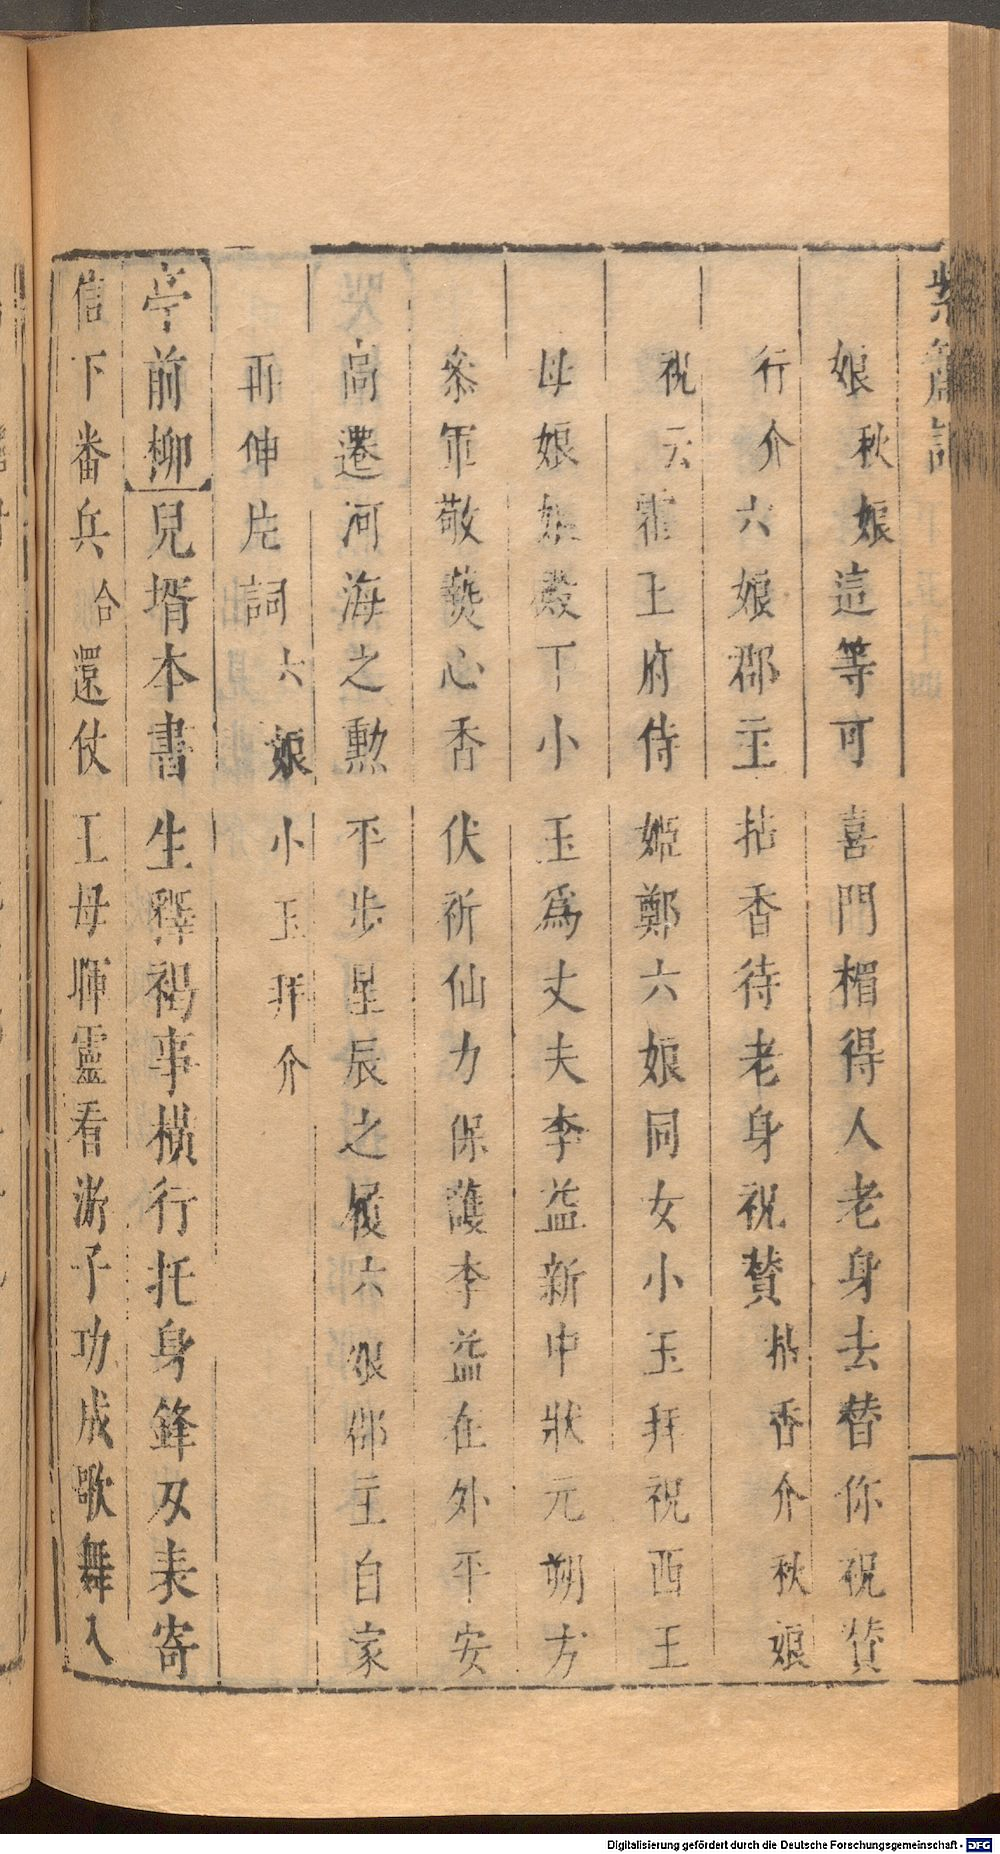 紫簫記
娘秋娘這等可喜門楣得人老身去替你祝贊
行介六娘郡主拈香待老身祝贊拈香介秋娘
祝云霍王府侍姬鄭六娘同女小玉拜祝西王
母娘娘殿下小玉爲丈夫李益新中狀元朔方
叅軍敬爇心香伏祈仙力保護李益在外平安
高遷河海之勲平步星辰之履六娘郡主自家
再伸片詞六娘小玉拜介
亭前柳兒壻本書生釋褐事橫行托身鋒刃表寄
信下番兵合還仗王母暉靈看游子功成歌舞入
Digitalisierung gefördert durch die Deutsche Forschungsgemeinschaft - DFG